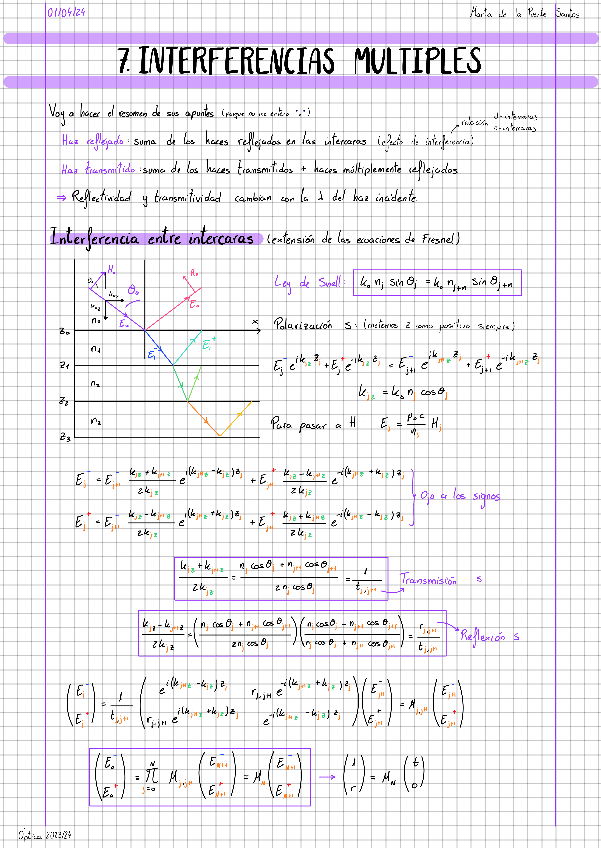 01/04/24
Marta de la Puente Santos
7. INTERFERENCIAS MULTIPLES
Voy a hacer el resumen de sus apuntes (porque no me entero :·)
Haz reflejado: suma de los haces reflejados en las intercaras (efecto de interferencia)
relación
intercaras
Haz transmitido: suma de los haces transmitidos + haces múltiplemente reflejados
⇒ Reflectividad y transmitividad cambian con la λ del haz incidente
Interferencia entre intercaras (extensión de las ecuaciones de Fresnel)
Ley de Snell: k₀ nⱼ sin θⱼ = k₀ nⱼ₊ₙ sin θⱼ₊ₙ
Polarización s: (metemos z como positivo siempre)
Eⱼ⁻ e^{i kⱼz zⱼ} + Eⱼ⁺ e^{-i kⱼz zⱼ} = Eⱼ₊₁⁻ e^{i kⱼ₊₁z zⱼ} + Eⱼ₊₁⁺ e^{-i kⱼ₊₁z zⱼ}
kⱼz = k₀ nⱼ cos θⱼ
Para pasar a H Eⱼ = μ₀c/nⱼ Hⱼ
z₀
n₀
x
n₁
z₁
z₂
n₂
z₃
θ₀
H₀
E₀
E₁⁻
E₁⁺
Eⱼ⁻ = Eⱼ₊₁⁻ (kⱼz + kⱼ₊₁z)/2kⱼz e^{i(kⱼ₊₁z - kⱼz)zⱼ} + Eⱼ₊₁⁺ (kⱼz - kⱼ₊₁z)/2kⱼz e^{-i(kⱼ₊₁z + kⱼz)zⱼ}
Eⱼ⁺ = Eⱼ₊₁⁻ (kⱼz - kⱼ₊₁z)/2kⱼz e^{i(kⱼ₊₁z + kⱼz)zⱼ} + Eⱼ₊₁⁺ (kⱼz + kⱼ₊₁z)/2kⱼz e^{-i(kⱼ₊₁z - kⱼz)zⱼ}
Ojo a los signos
(kⱼz + kⱼ₊₁z)/2kⱼz = (nⱼ cos θⱼ + nⱼ₊₁ cos θⱼ₊₁)/(2nⱼ cos θⱼ) = 1/tⱼ,ⱼ₊₁
Transmisión s
(kⱼz - kⱼ₊₁z)/2kⱼz = ((nⱼ cos θⱼ + nⱼ₊₁ cos θⱼ₊₁)/(2nⱼ cos θⱼ)) ((nⱼ cos θⱼ - nⱼ₊₁ cos θⱼ₊₁)/(nⱼ cos θⱼ + nⱼ₊₁ cos θⱼ₊₁)) = rⱼ,ⱼ₊₁/tⱼ,ⱼ₊₁
Reflexión s
(Eⱼ⁻ Eⱼ⁺) = 1/tⱼ,ⱼ₊₁ (e^{i(kⱼ₊₁z - kⱼz)zⱼ} rⱼ,ⱼ₊₁ e^{-i(kⱼ₊₁z + kⱼz)zⱼ} rⱼ,ⱼ₊₁ e^{i(kⱼ₊₁z + kⱼz)zⱼ} e^{-i(kⱼ₊₁z - kⱼz)zⱼ}) (Eⱼ₊₁⁻ Eⱼ₊₁⁺) = Mⱼ,ⱼ₊₁ (Eⱼ₊₁⁻ Eⱼ₊₁⁺)
(E₀⁻ E₀⁺) = ∏_{j=0}^{N} Mⱼ,ⱼ₊₁ (E_{N+1}⁻ E_{N+1}⁺) = M_N (E_{N+1}⁻ E_{N+1}⁺) → (1 r) = M_N (t 0)
Óptica 2023/24